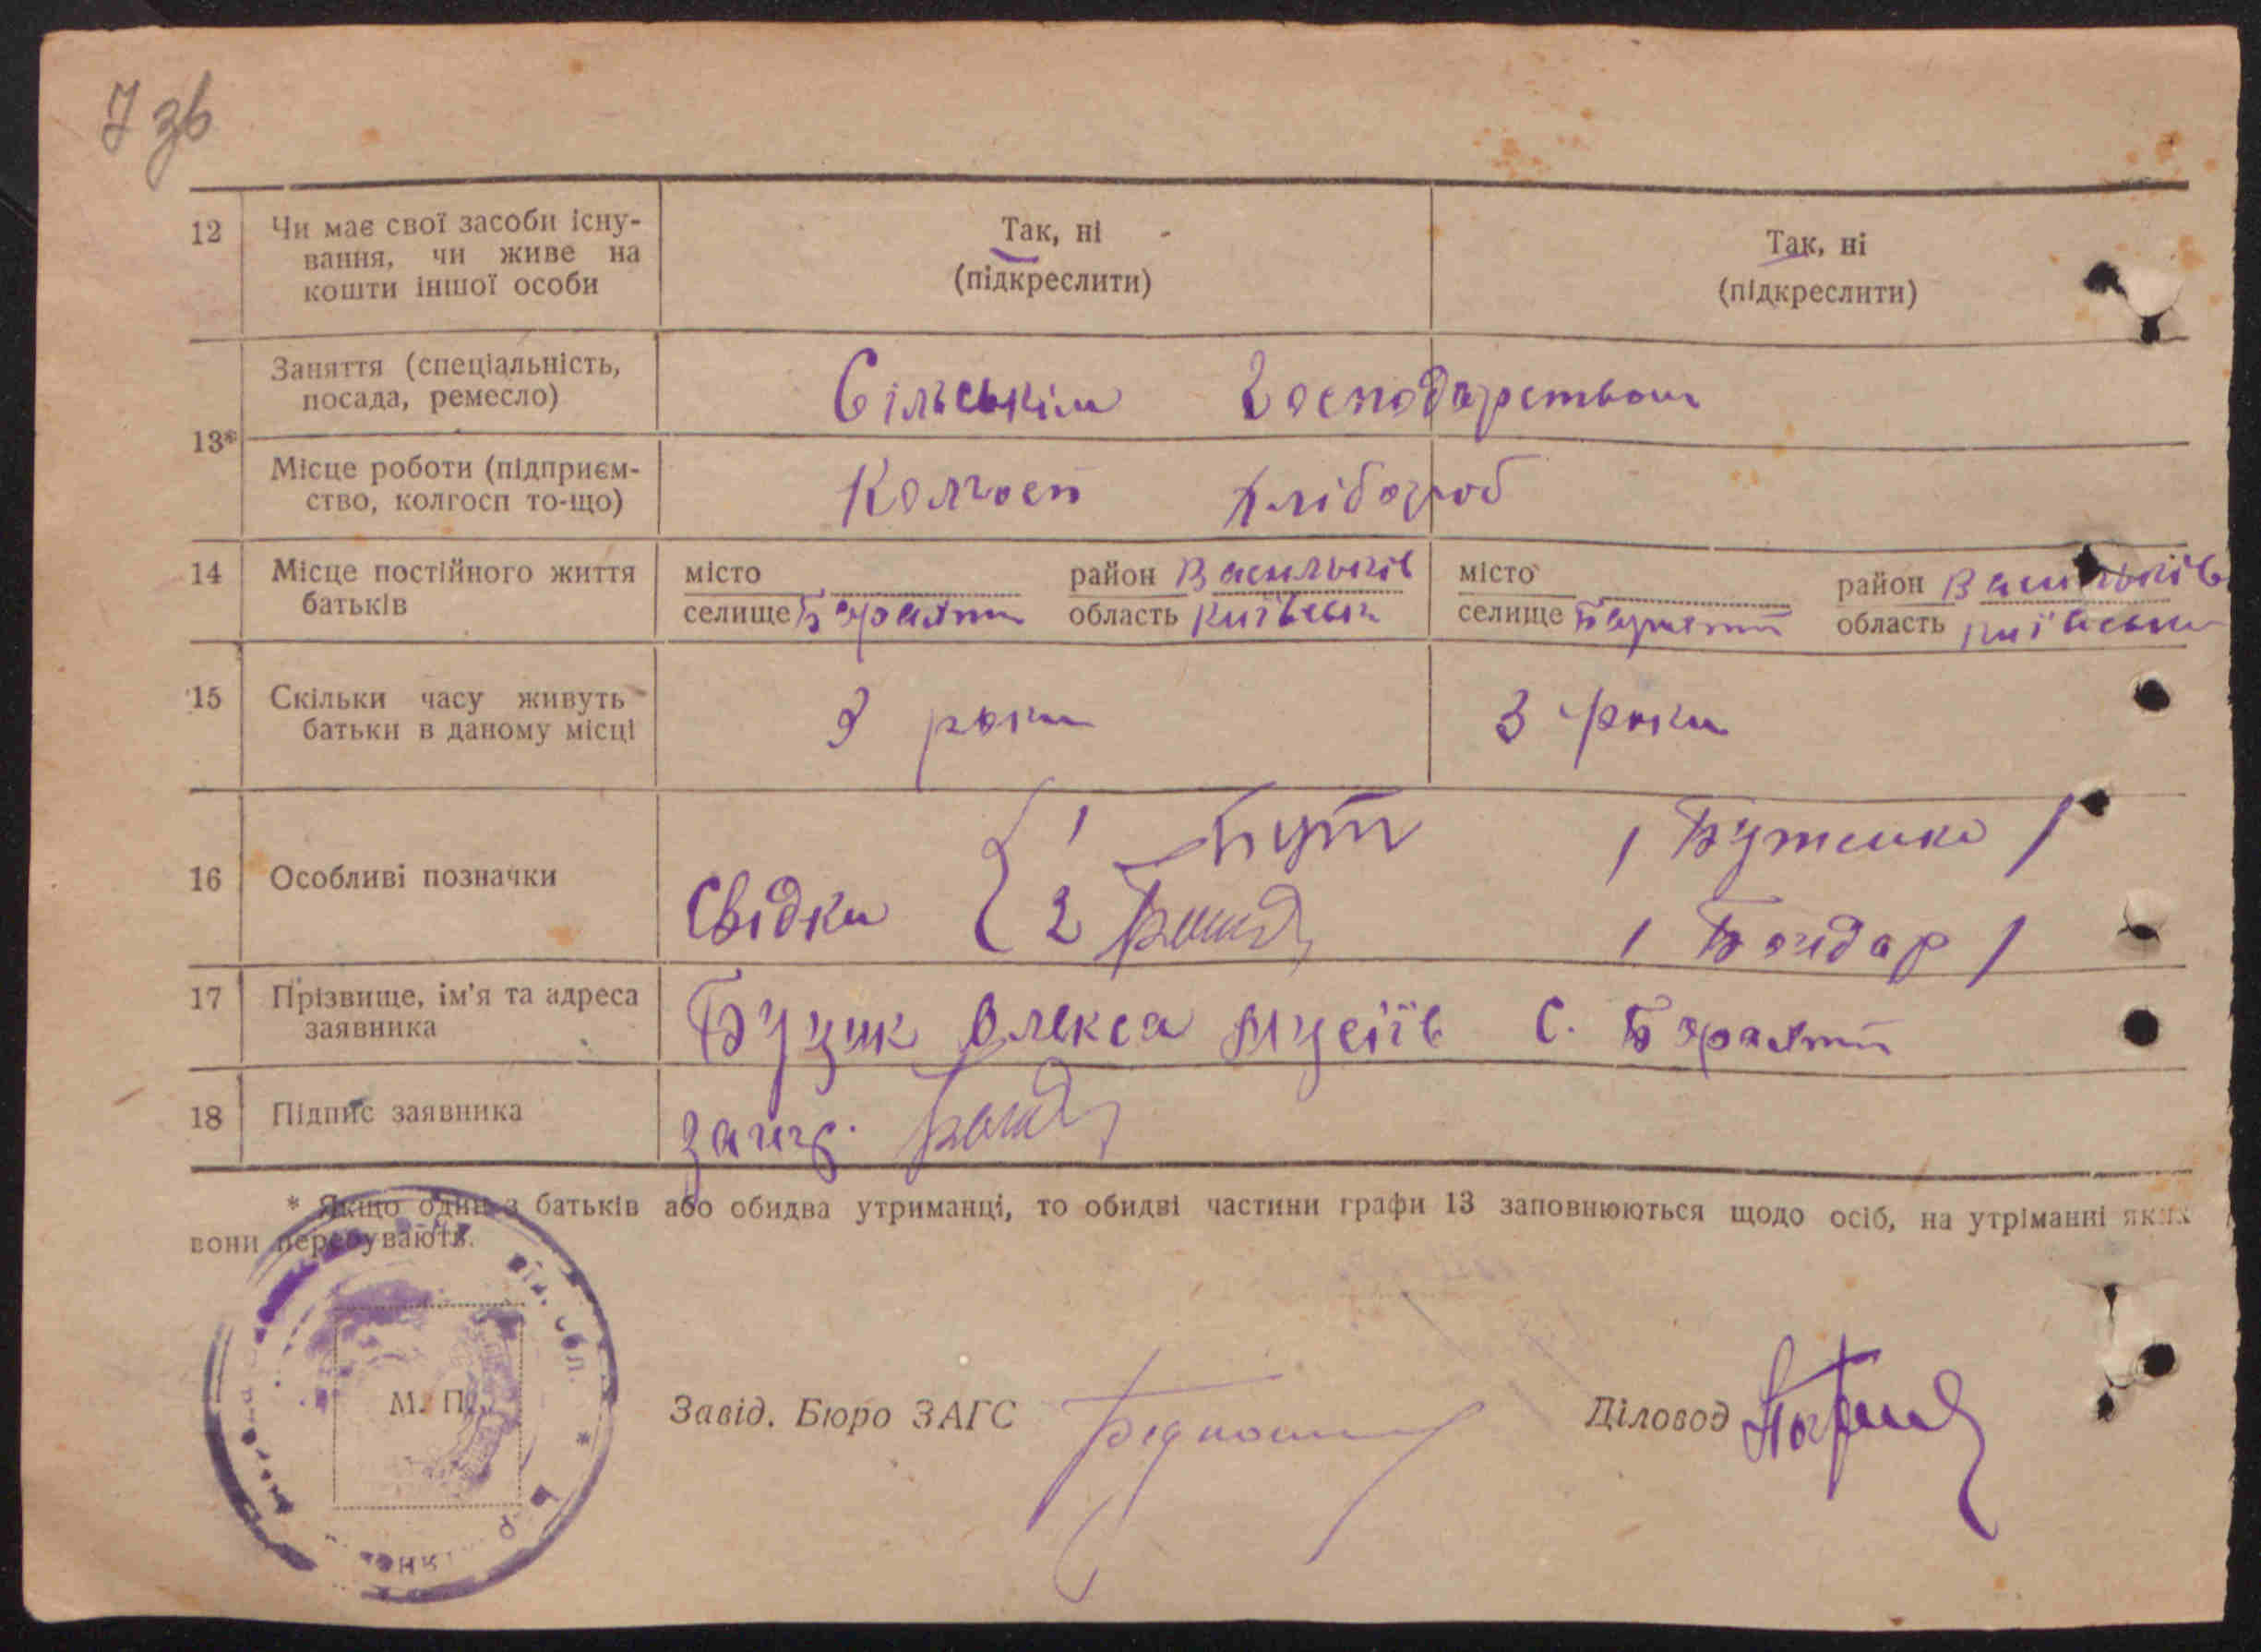 7 зв
12 Чи має свої засоби існу-
вання, чи живе на
кошти іншої особи
Так, ні
(підкреслити)
Так, ні
(підкреслити)
13*
Заняття (спеціальність,
посада, ремесло)
Сільськім Господарством
Місце роботи (підприєм-
ство, колгосп то-що)
Колгосп Хлібороб
14 Місце постійного життя
батьків
місто район Васильків
селище Барахти область Київськ
місто район Васильків
селище Барахти область Київськ
15 Скільки часу живуть
батьки в даному місці
3 роки
3 роки
16 Особливі позначки
Свідки { 1 Бут / Бутенко /
2 Бонд / Бондар /
17 Прізвище, ім'я та адреса
заявника
Бузик Олекса Мусіїв С. Барахти
18 Підпис заявника
* Якщо один з батьків або обидва утриманці, то обидві частини графи 13 заповнюються щодо осіб, на утріманні яких
вони перебувають.
М. П.
Завід. Бюро ЗАГС
Діловод